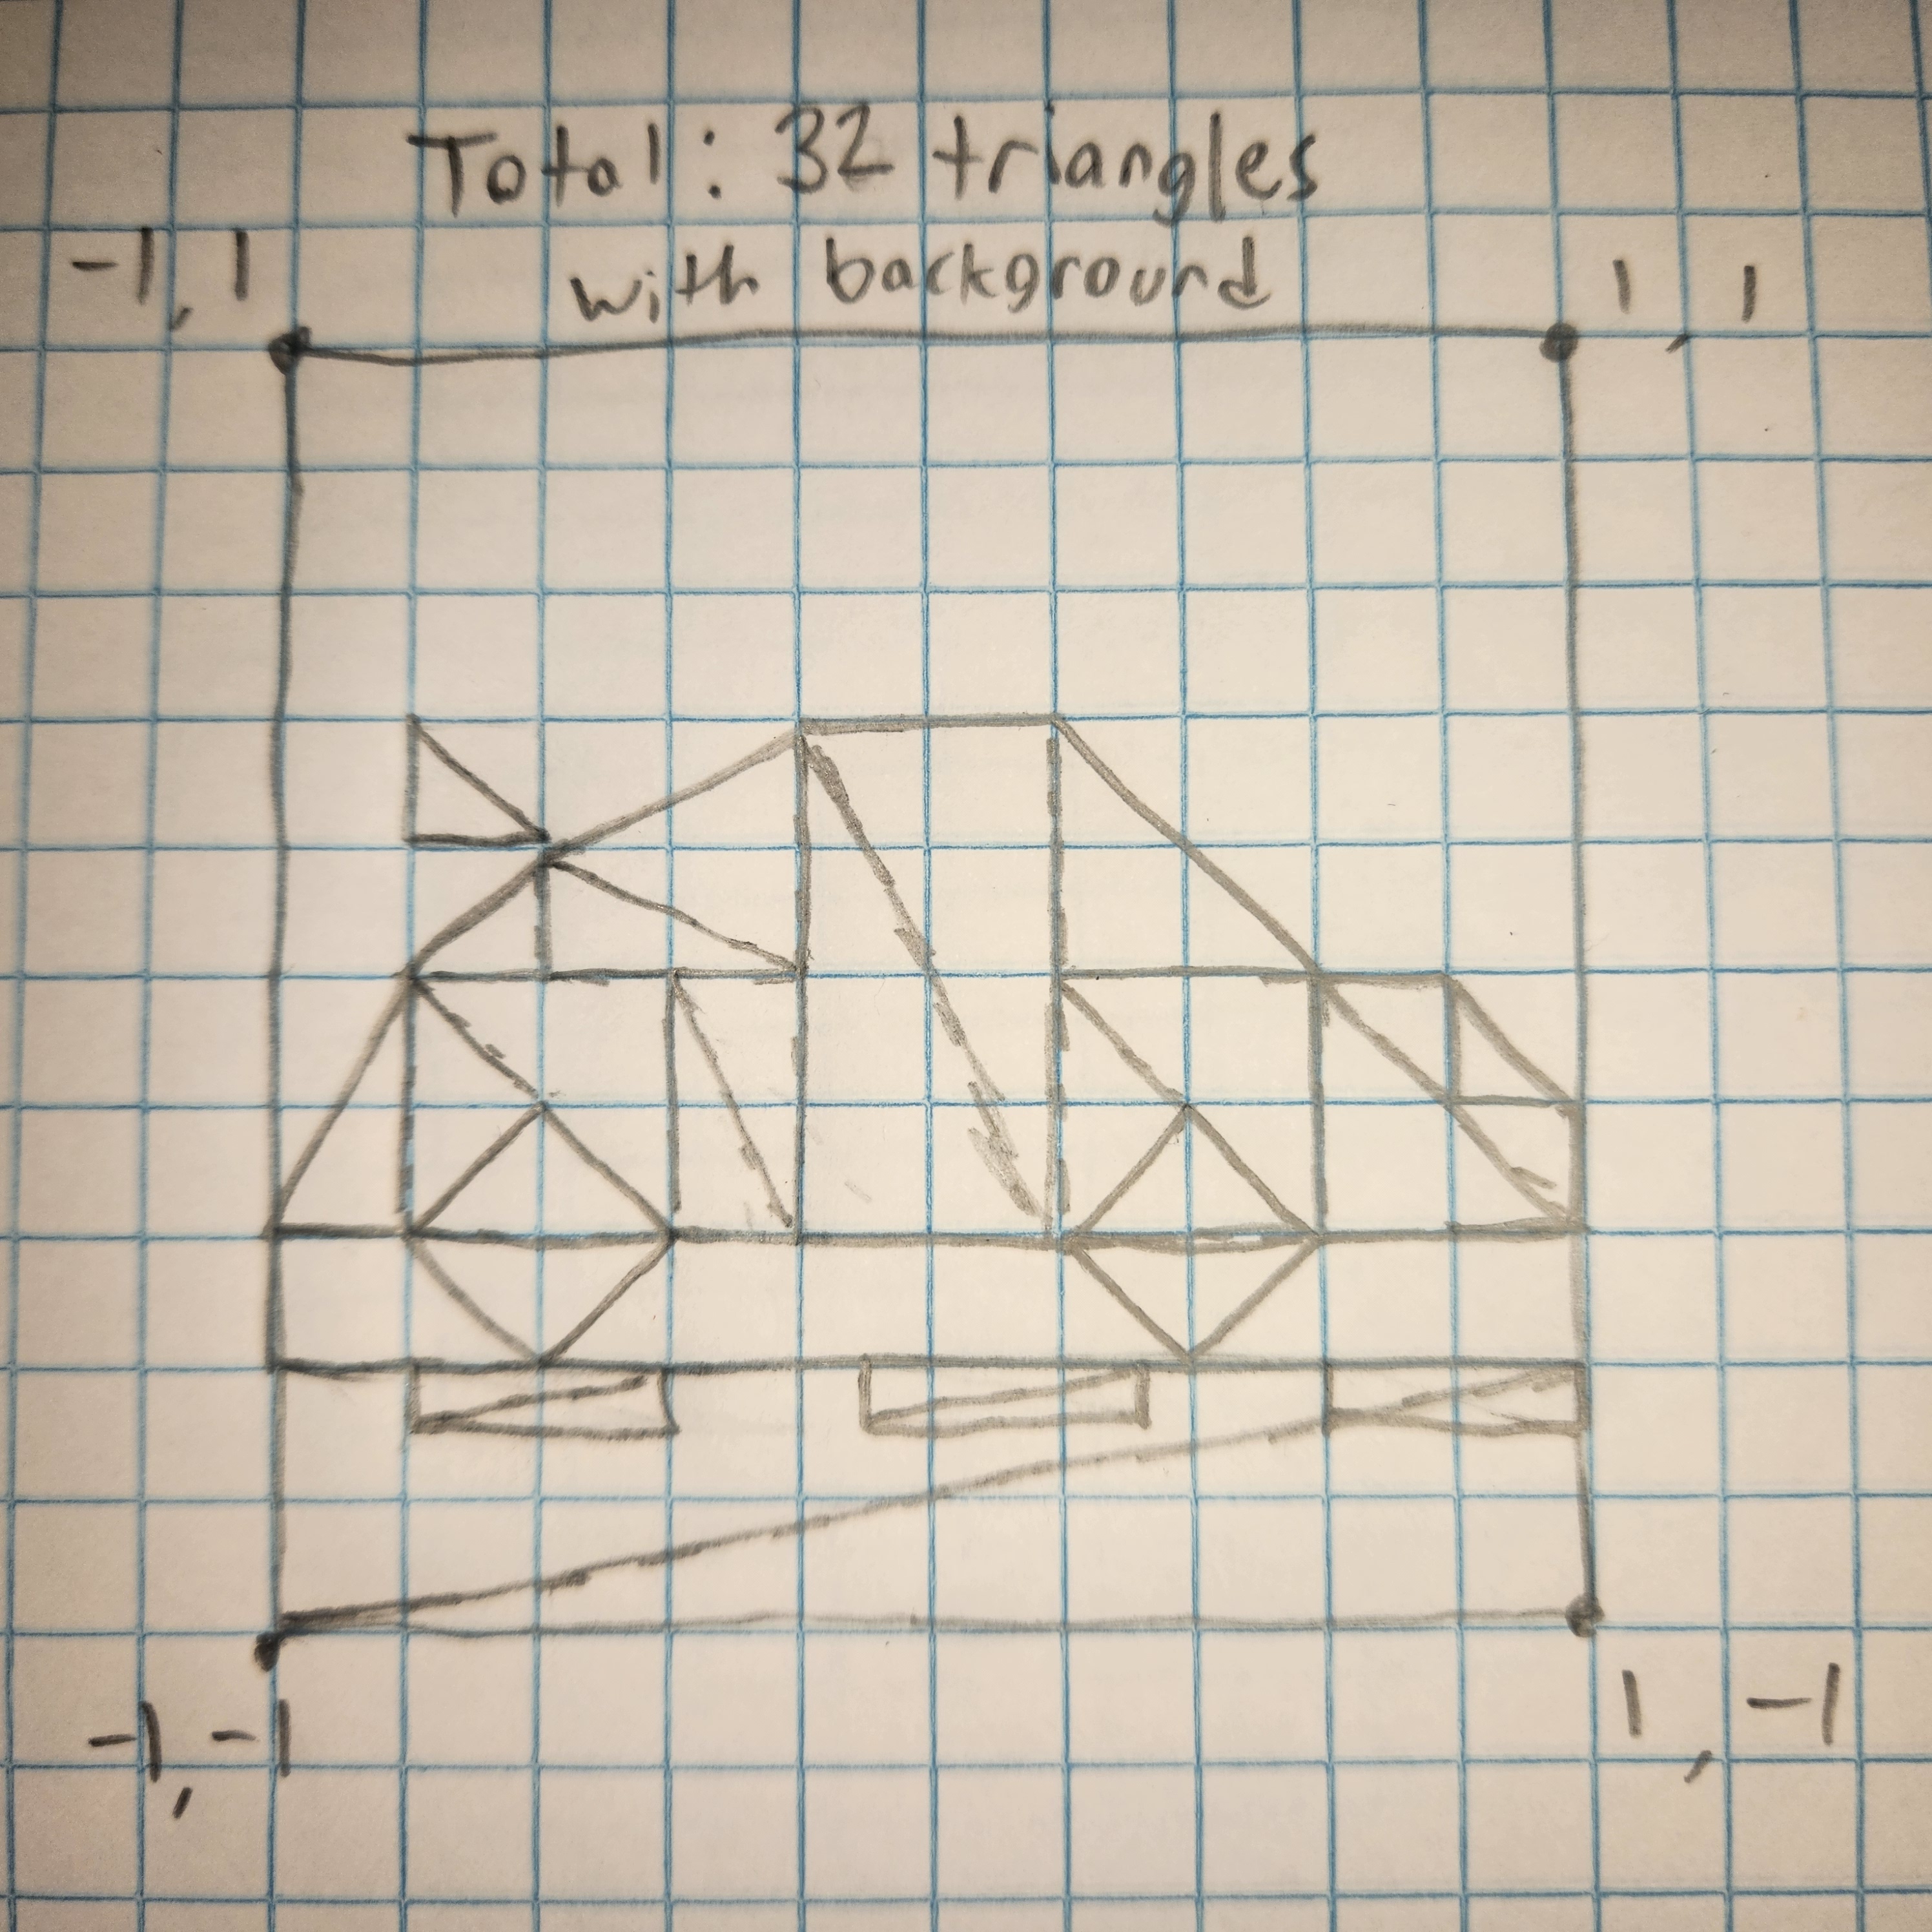 Total: 32 triangles
with background
-1, 1
1, 1
-1, -1
1, -1